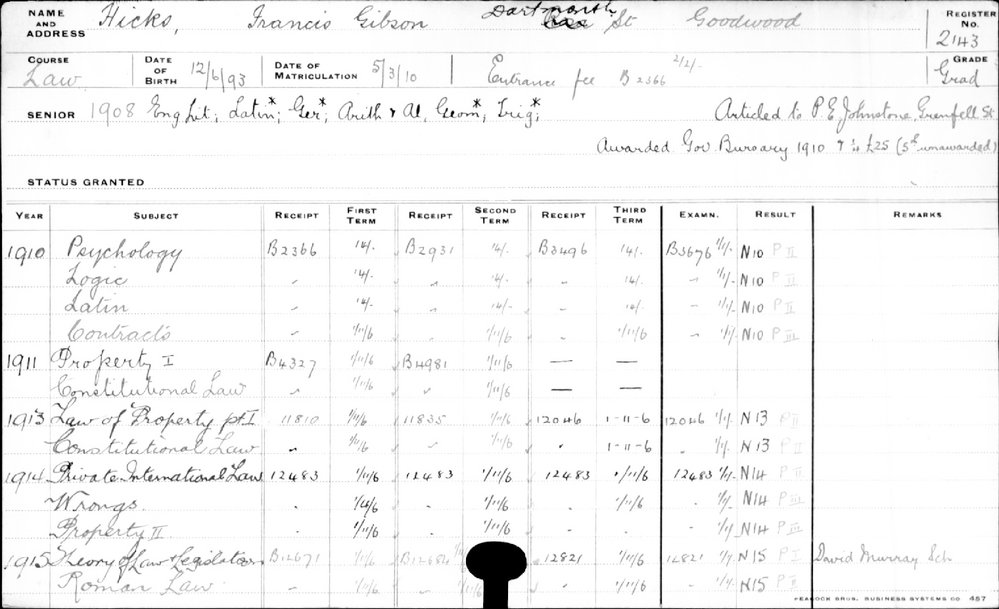 NAME AND ADDRESS Hicks, Francis Gibson Dartmouth St Goodwood REGISTER No. 2143
COURSE Law DATE OF BIRTH 12/6/93 DATE OF MATRICULATION 5/3/10 Entrance fee B2366 2/2/- GRADE Grad
SENIOR 1908 Eng Lit; Latin*; Ger*; Arith & Al, Geom*, Trig*; Articled to P. E. Johnstone, Grenfell St
Awarded Gov Bursary 1910 £25 (5th unawarded)
STATUS GRANTED
YEAR SUBJECT RECEIPT FIRST TERM RECEIPT SECOND TERM RECEIPT THIRD TERM EXAMN. RESULT REMARKS
1910 Psychology B2366 14/- B2931 14/- B3496 14/- B3676 1/1/- N10 P II
Logic " 14/- " 14/- " 14/- " 1/1/- N10 P II
Latin " 14/- " 14/- " 14/- " 1/1/- N10 P II
Contracts " 1/11/6 " 1/11/6 " 1/11/6 " 1/1/- N10 P III
1911 Property I B4327 1/11/6 B4981 1/11/6 — —
Constitutional Law " 1/11/6 " 1/11/6 — —
1913 Law of Property pt I 11810 1/11/6 11835 1/11/6 12046 1-11-6 12046 1/1/- N13 P II
Constitutional Law " 1/11/6 " 1/11/6 " 1-11-6 " 1/1/- N13 P II
1914 Private International Law 12483 1/11/6 12483 1/11/6 12483 1/11/6 12483 1/1/- N14 P II
Wrongs. " 1/11/6 " 1/11/6 " 1/11/6 " 1/1/- N14 P III
Property II " 1/11/6 " 1/11/6 " 1/1/- N14 P III
1915 Theory of Law & Legislation B12671 1/11/6 B12684 12821 1/11/6 12821 1/1/- N15 P I David Murray Sch
Roman Law " 1/11/6 1/11/6 " 1/11/6 " 1/1/- N15 P II
PEACOCK BROS. BUSINESS SYSTEMS CO. 457